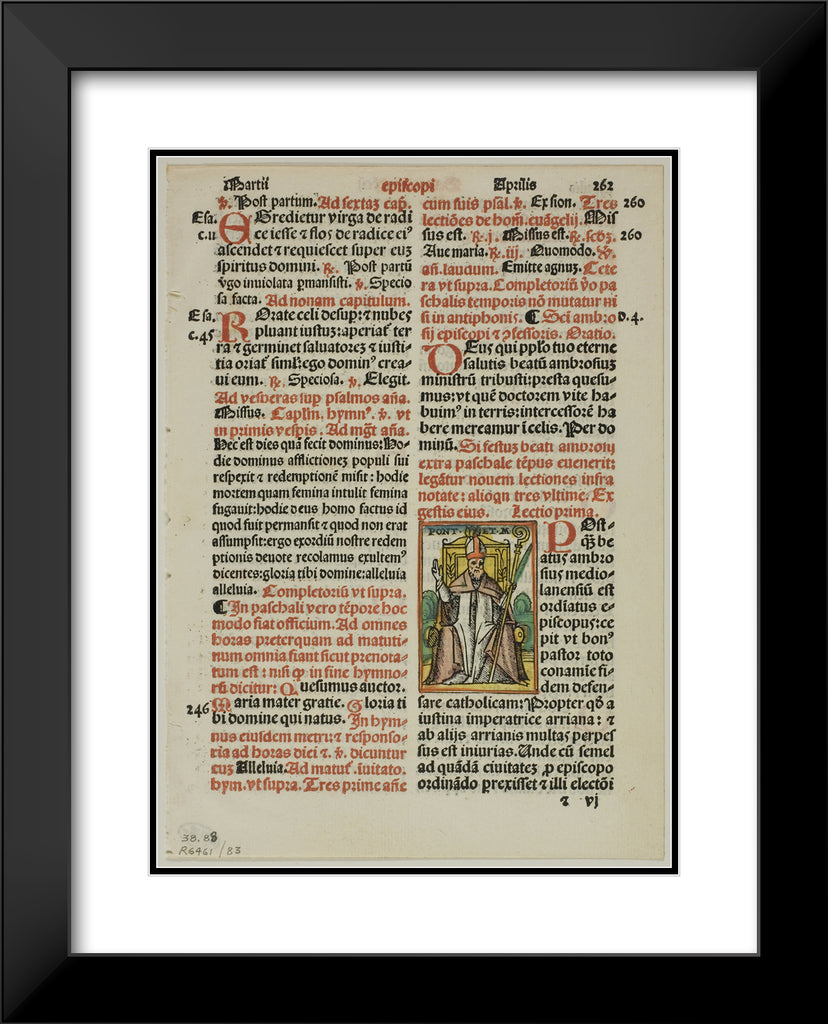 Martii episcopi Aprilis 262
℣. Post partum. Ad sextaʒ cap̃.
Esa. c.11
EGredietur virga de radi
ce iesse ⁊ flos de radice eiꝰ
ascendet ⁊ requiescet super euʒ
spiritus domini. ℟. Post partū
ṽgo inuiolata p̱mansisti. ℣. Specio
sa facta. Ad nonam capitulum.
Esa. c.45
ROrate celi desup̱: ⁊ nubes
pluant iustuʒ: aperiat̃ ter
ra ⁊ germinet saluatoreʒ ⁊ iusti-
tia oriat̃ siml̃: ego dominꝰ crea-
ui eum. ℟. Speciosa. ℣. Elegit.
Ad vesperas sup̱ psalmos aña.
Missus. Capl̃m. hymnꝰ. ⁊. ℣. vt
in primis vesp̱is. Ad mg̃t aña.
Hec est dies quā fecit dominus: Ho-
die dominus afflictioneʒ populi sui
respexit ⁊ redemptionē misit: hodie
mortem quam femina intulit femina
fugauit: hodie deus homo factus id
quod fuit permansit ⁊ quod non erat
assumpsit: ergo exordiū nostre redem
ptionis deuote recolamus exultemꝰ
dicentes: gloria tibi domine: alleluia
alleluia. Completoriū vt supra.
¶ In paschali vero tēpore hoc
modo fiat officium. Ad omnes
horas preterquam ad matuti-
num omnia fiant sicut prenota-
tum est: nisi ꝙ in fine hymno-
rū dicitur: Quesumus auctor.
Maria mater gratie. Gloria ti
246 bi domine qui natus. In hym-
nus eiusdem metri: ⁊ responso-
ria ad horas diei ⁊. ℣. dicuntur
cuʒ Alleluia. Ad matut̃. iuitato.
hym. vt supra. Tres prime añe
cum suis psal. ℣. Ex sion. Tres 260
lectiões de hom̃. euāgelij. Mis
sus est. ℟. j. Missus est. ℟. scðʒ. 260
Aue maria. ℟. iij. Quomodo. ℣.
añ. laudum. Emitte agnuʒ. Cete
ra vt supra. Completoriū ṽo pa
schalis temporis nō mutatur ni
si in antiphonis. ¶ Sci ambro D.4.
sij episcopi ⁊ ꝯfessoris. Oratio.
DEus qui pp̱lo tuo eterne
salutis beatū ambrosiuʒ
ministrū tribuisti: presta quesu-
mus: vt quē doctorem vite ha-
buimꝰ in terris: intercessorē ha
bere mereamur ī celis. Per do
minū. Si festuʒ beati ambrosij
extra paschale tēpus euenerit:
legātur nouem lectiones infra
notate: alioqn tres vltime. Ex
gestis eius. Lectio prima.
PONT. ET. M
POst-
q̃ʒ be
atus ambro
sius medio-
lanensiū est
ordīatus e-
piscopus: ce
pit vt bonꝰ
pastor toto
conamie fi-
dem defen-
sare catholicam: Propter qð a
iustina imperatrice arriana: ⁊
ab alijs arrianis multas perpes
sus est iniurias. Unde cū semel
ad quādā ciuitateʒ ꝓ episcopo
ordinādo p̱rexisset ⁊ illi electōi
⁊ vj
38.88
R6461/83